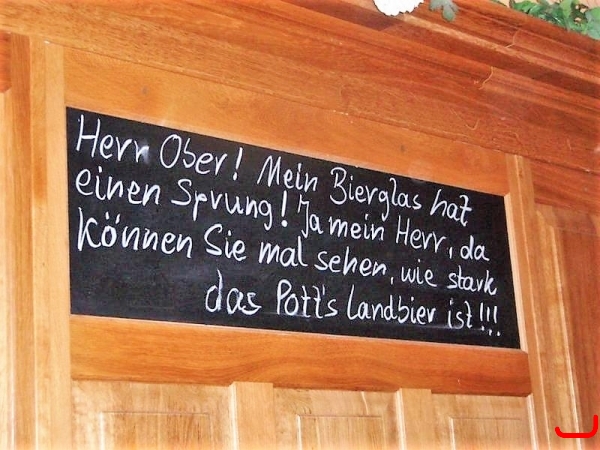 Herr Ober! Mein Bierglas hat
einen Sprung! Ja mein Herr, da
können Sie mal sehen, wie stark
das Pott's Landbier ist!!!